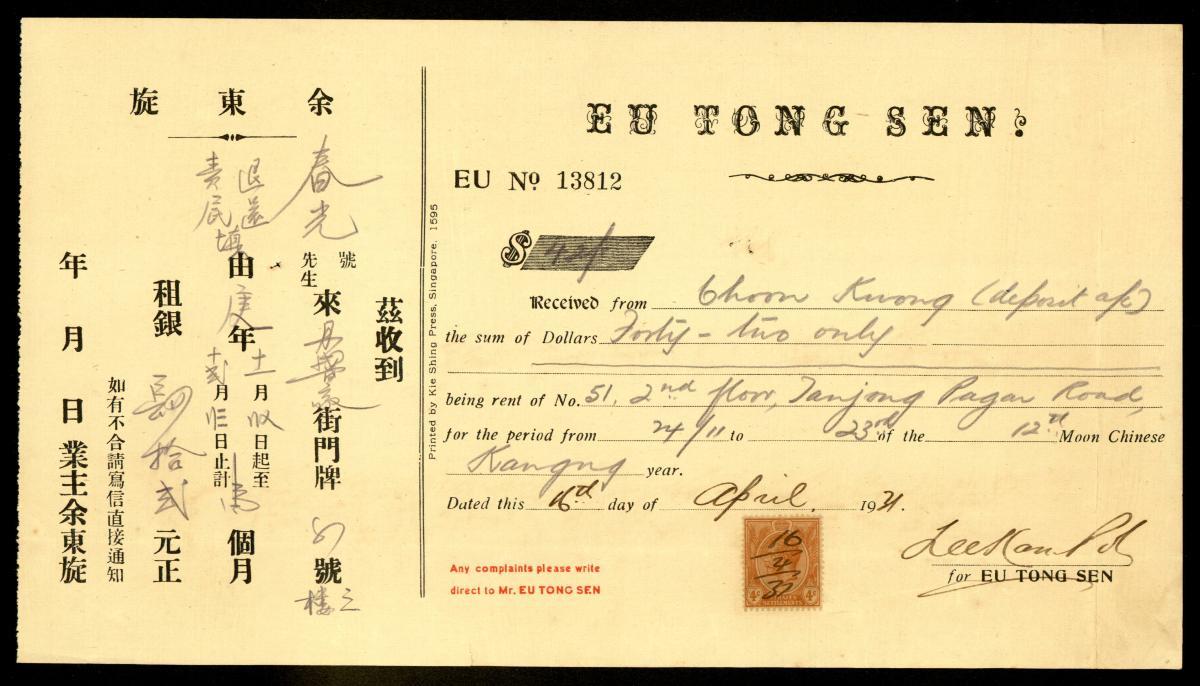 余東旋
茲收到
春光
號
先生
來丹戎巴葛街門牌51號
三樓
退還
由庚年十一月 日起至
十弍月 日止計 個月
租銀 肆拾弍元正
如有不合請寫信直接通知
年月日業主余東旋
Printed by Kie Shing Press, Singapore. 1595
EU TONG SEN.
EU No 13812
$ 42/
Received from Choon Kwong (deposit a/c)
the sum of Dollars Forty-two only
being rent of No. 51, 2nd floor, Tanjong Pagar Road,
for the period from 24/11 to 23rd of the 12th Moon Chinese
Kangng year.
Dated this 16th day of April. 1931.
16
4
31
SETTLEMENTS
4c 4c
for EU TONG SEN,
Any complaints please write
direct to Mr. EU TONG SEN